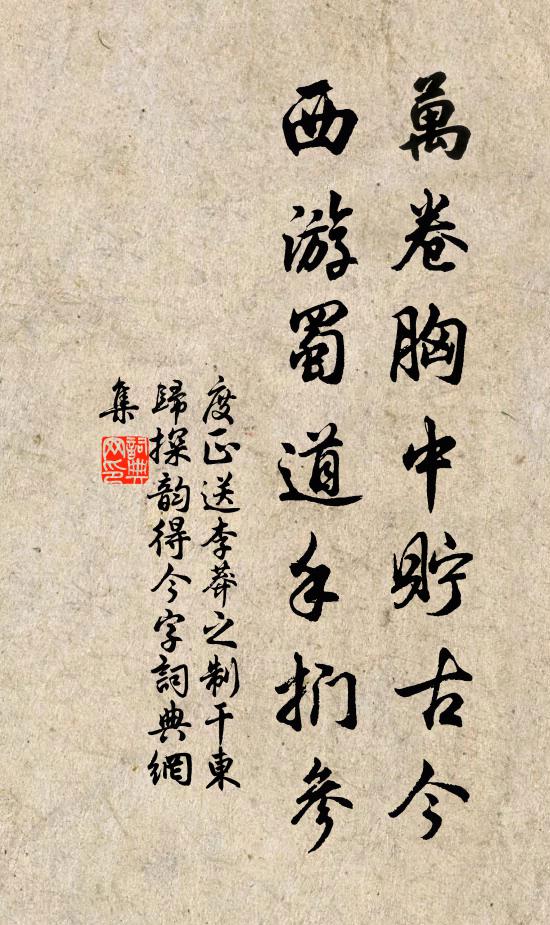 萬卷胸中貯古今
西游蜀道手捫參
度正送李莽之制干東
歸探韵得今字詞典網
集
詞典网印